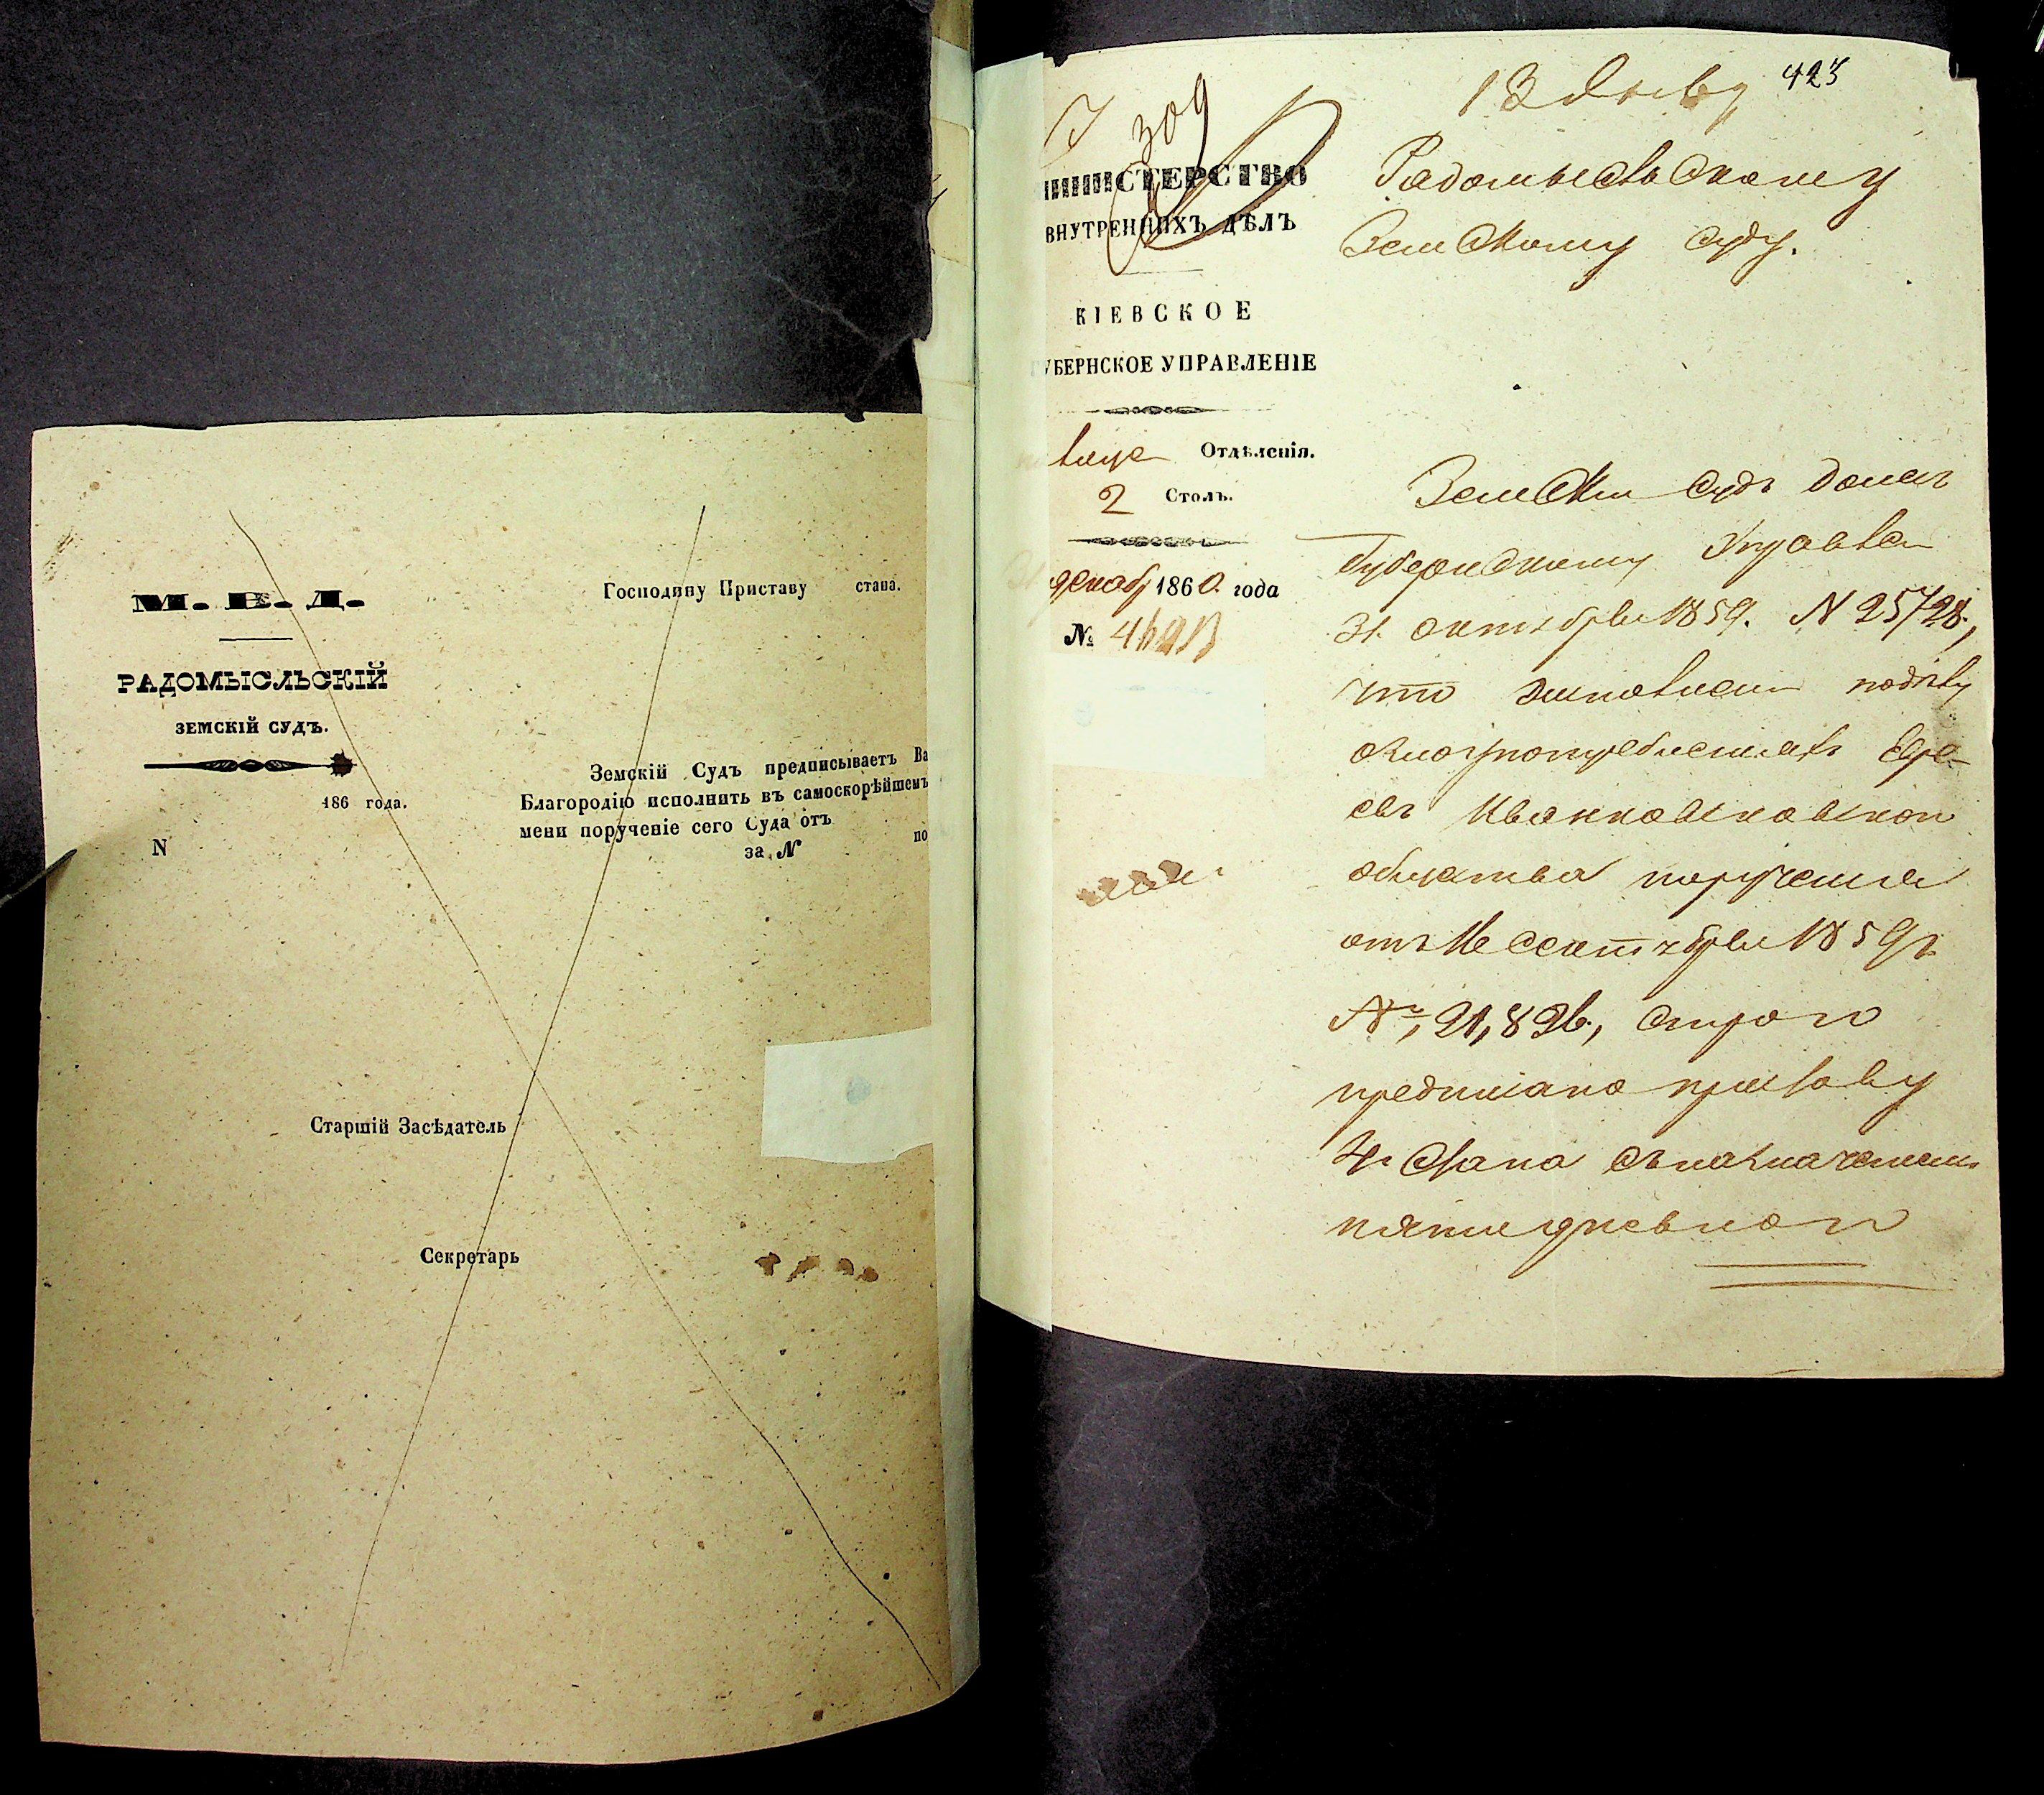 М. В. Д.
РАДОМЫСЛЬСКІЙ
ЗЕМСКІЙ СУДЪ.
186 года.
N
Господину Приставу стана.
Земскій Судъ предписываетъ Ва
Благородію исполнить въ самоскорѣйшемъ
мени порученіе сего Суда отъ
за N по
Старшій Засѣдатель
Секретарь
309
МИНИСТЕРСТВО
ВНУТРЕННИХЪ ДѢЛЪ
КІЕВСКОЕ
ГУБЕРНСКОЕ УПРАВЛЕНІЕ
Отдѣленія.
2 Столъ.
декаб 1860 года
№
13 Янв 423
Радомысльскому
Земскому Суду.
Земскій Судъ донесъ
Губернскому Управлен
31 октября 1859. N 25728,
что
злоупотребленіяхъ Евре
евъ
общества порученія
отъ 16 сентября 1859 г.
№ 21,826, строго
предписано приставу
4 стана съ назначеніемъ
пятидневного